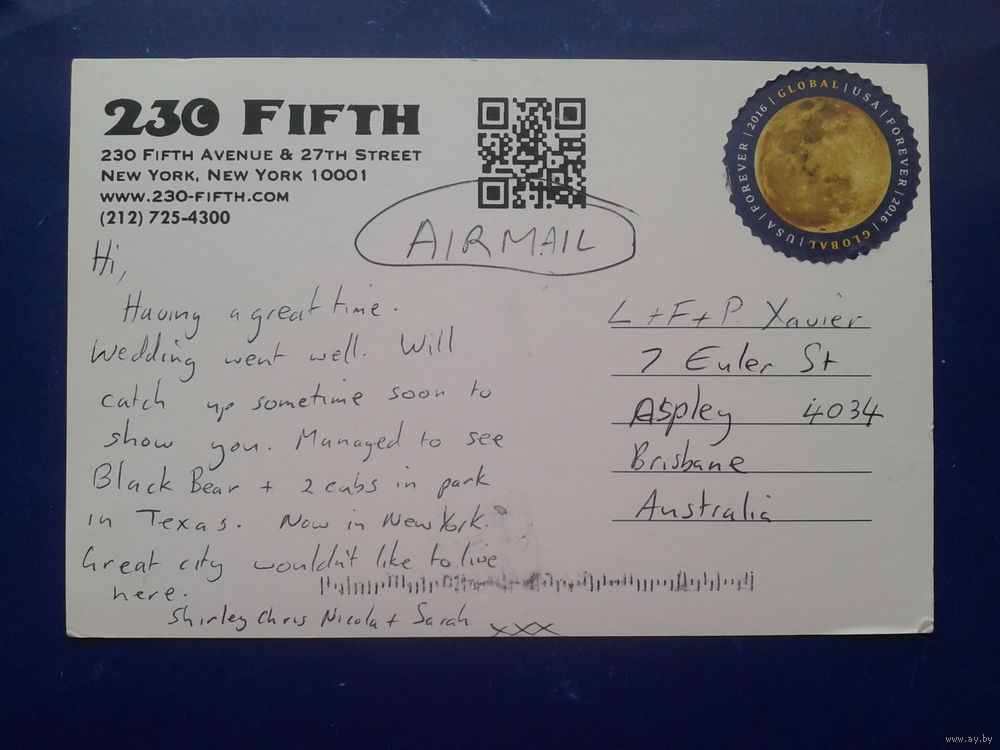 230 FIFTH
230 FIFTH AVENUE & 27TH STREET
NEW YORK, NEW YORK 10001
WWW.230-FIFTH.COM
(212) 725-4300
AIRMAIL
GLOBAL | USA | FOREVER | 2016 | GLOBAL | USA | FOREVER | 2016 |
Hi,
Having a great time.
Wedding went well. Will
catch up sometime soon to
show you. Managed to see
Black Bear + 2 cubs in park
in Texas. Now in New York.
Great city wouldn't like to live
here.
Shirley Chris Nicola + Sarah
xxx
L + F + P. Xavier
7 Euler St
Aspley 4034
Brisbane
Australia
www.ay.by